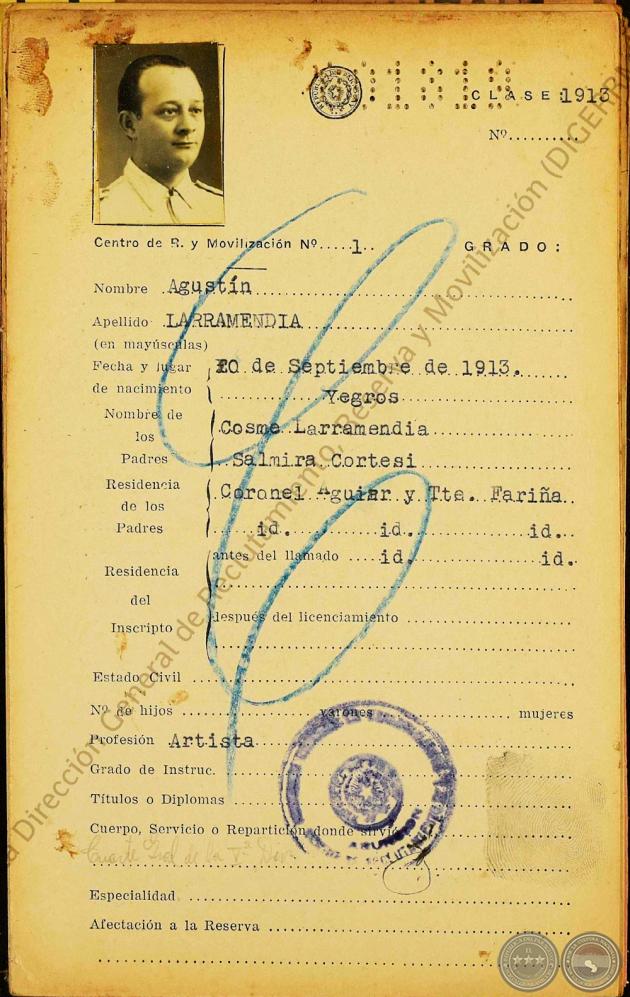 CLASE: 1913
Nº..........
Centro de R. y Movilización Nº.....1..
GRADO:
Nombre Agustín
Apellido LARRAMENDIA
(en mayúsculas)
Fecha y lugar de nacimiento 20 de Septiembre de 1913.
Yegros
Nombre de los Padres Cosme Larramendia
Salmira Cortesi
Residencia de los Padres Coronel Aguiar y Tte. Fariña
id. id. id.
Residencia del Inscripto antes del llamado id. id.
después del licenciamiento
Estado Civil
Nº de hijos varones mujeres
Profesión Artista
Grado de Instruc.
Títulos o Diplomas
Cuerpo, Servicio o Repartición donde sirvió
Cuarte Gral de la Vª Div.
Especialidad
Afectación a la Reserva
ASUNCION
Dirección General de Reclutamiento, Reserva y Movilización (DIGERRMOV